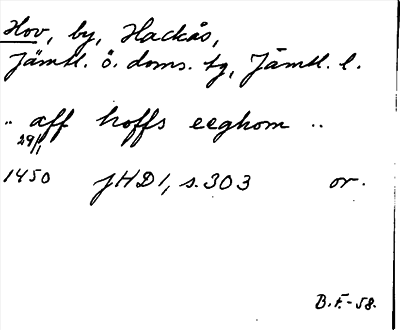 Hov, by, Hackås,
Jämtl. ö. doms. tg, Jämtl. l.
.. aff hoffs eeghom ..
29/1
1450 JHD1, s. 303 or.
B.F.-58.